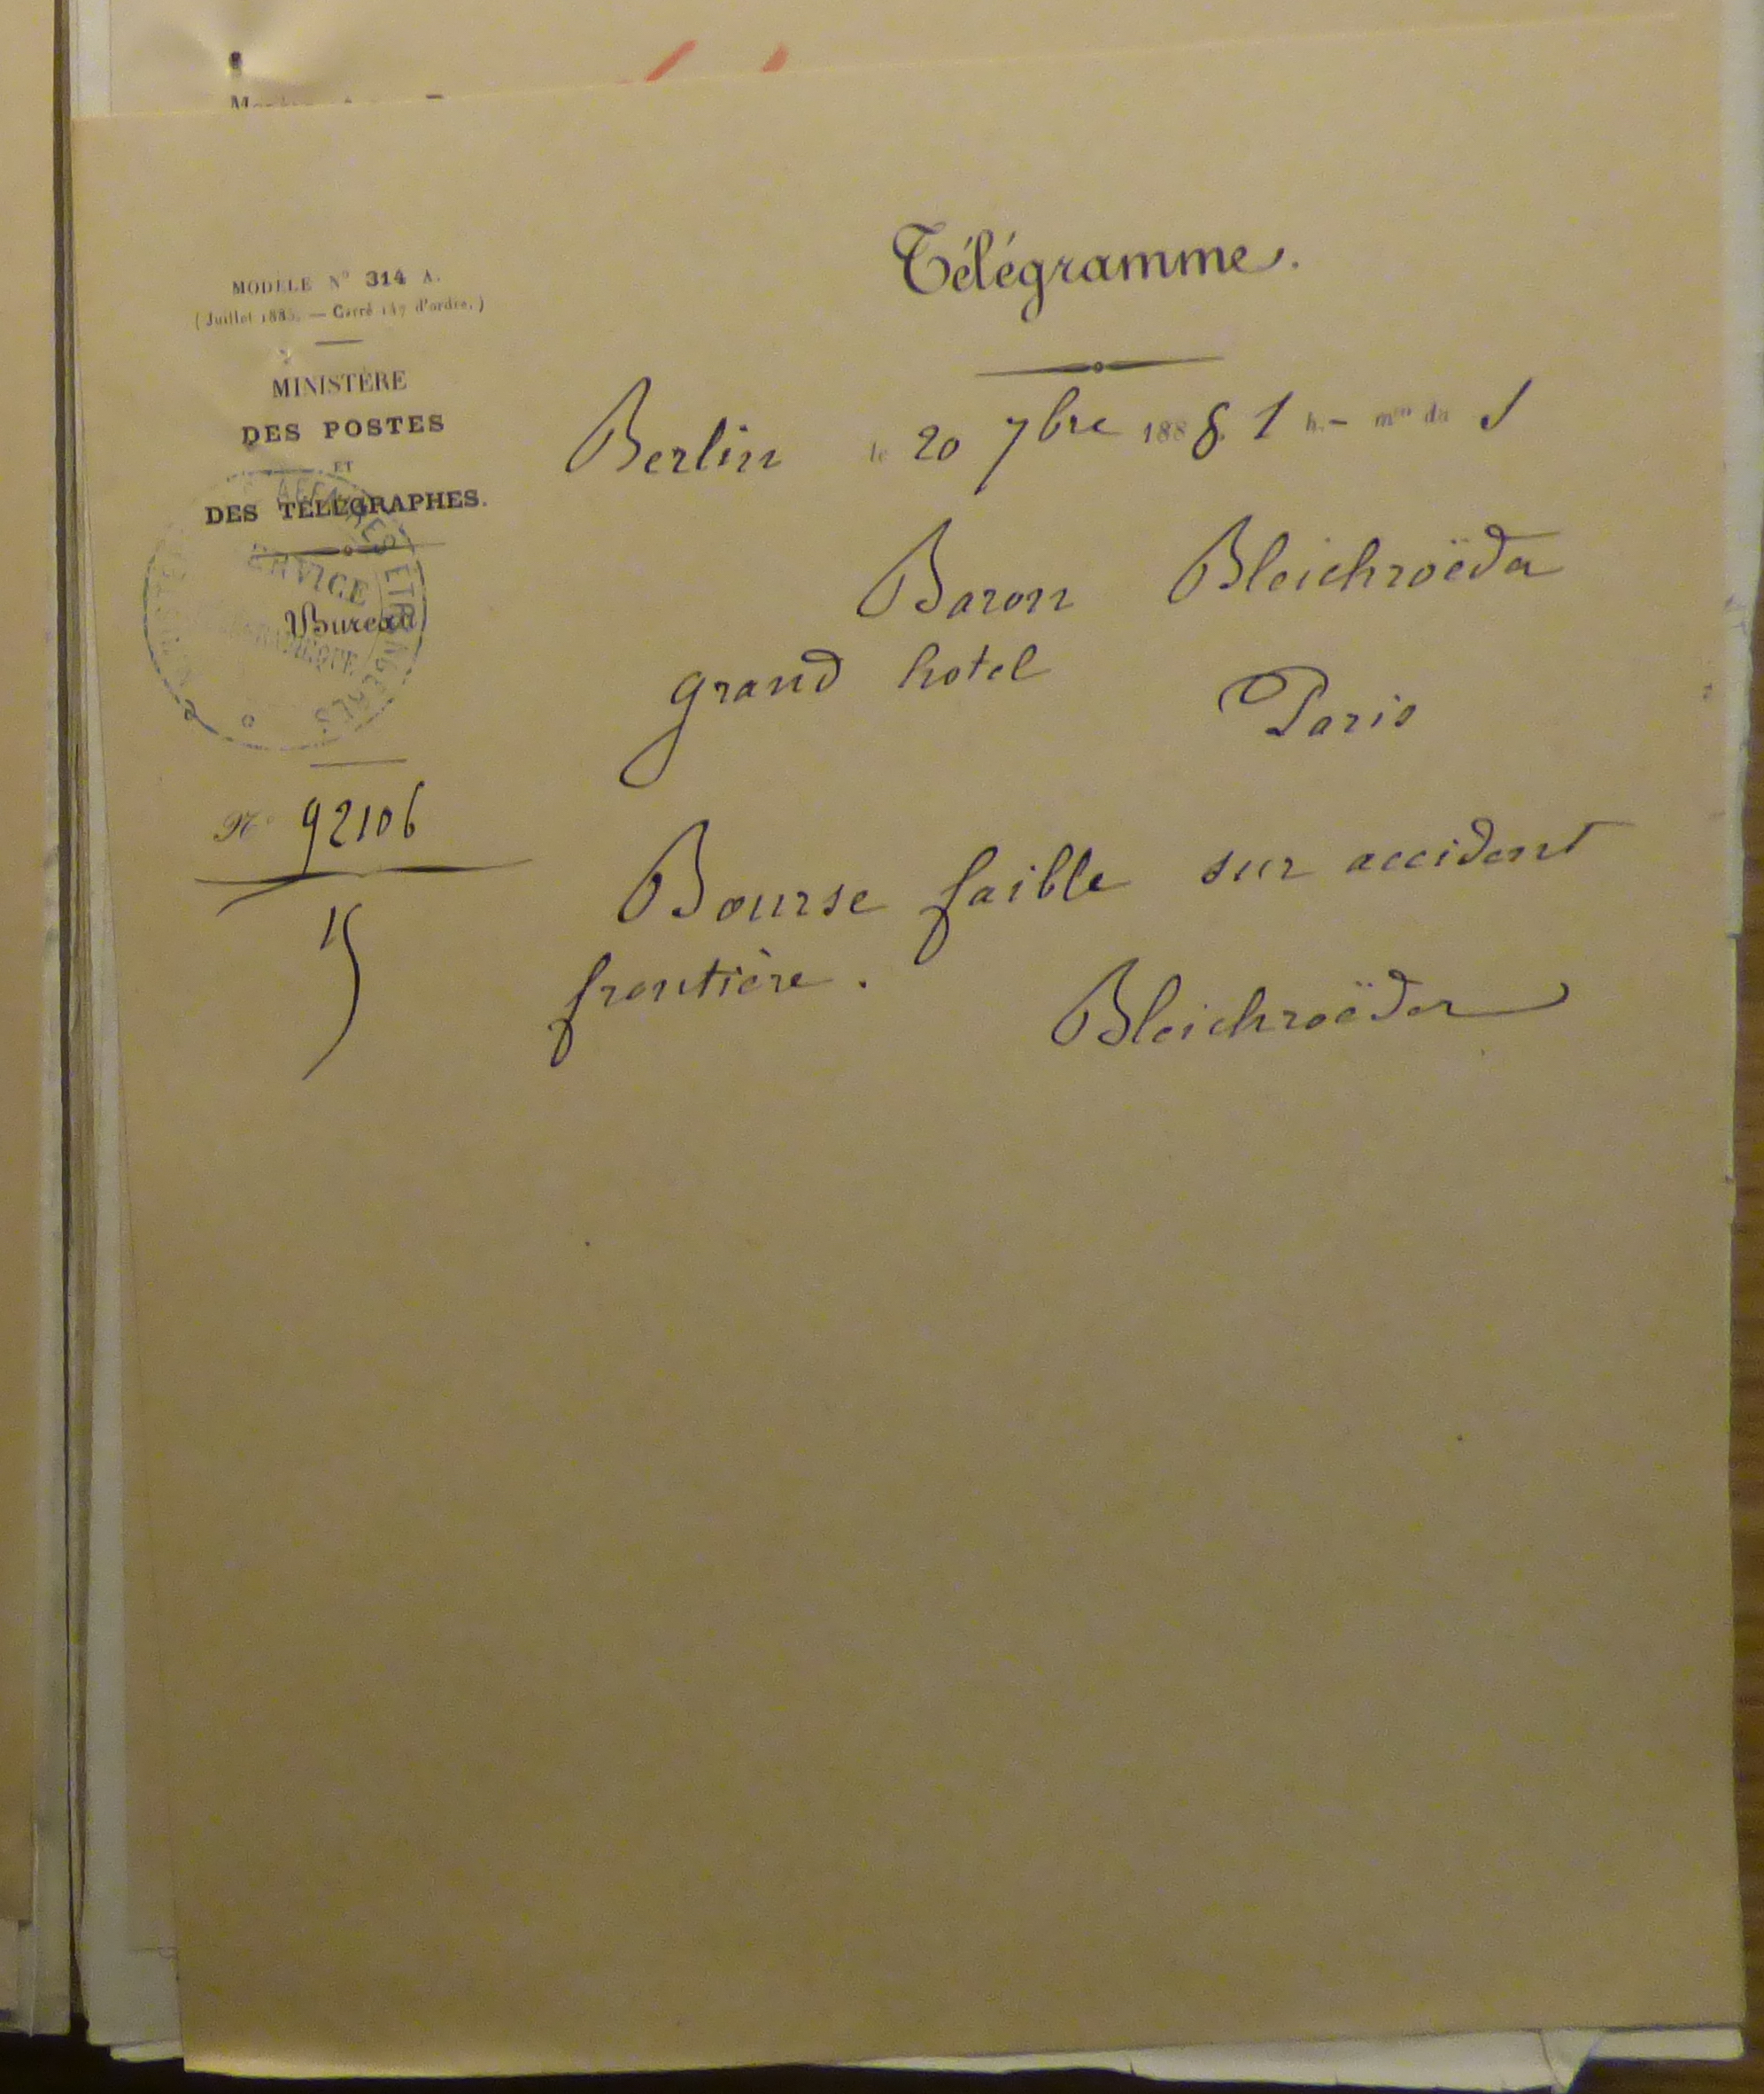 Télégramme.
MODÈLE N° 314 A.
(Juillet 1885. — Carré 147 d'ordre.)
MINISTÈRE
DES POSTES
ET
DES TÉLÉGRAPHES.
Bureau
AFFAIRES ÉTRANGÈRES
SERVICE
N° 92106
15
Berlin le 20 7bre 1888. 1 h. – m du S
Baron Bleichroëder
grand hotel Paris
Bourse faible sur accident
frontière.
Bleichroëder